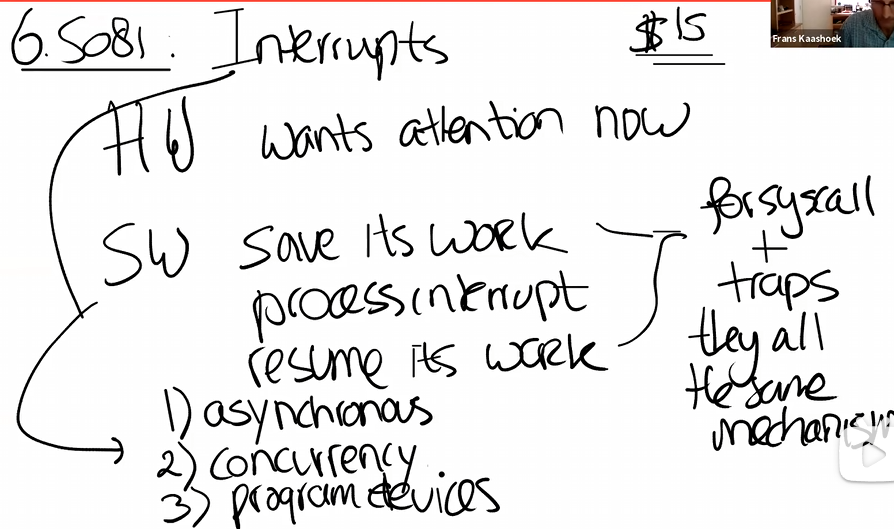 6.S081: Interrupts
$15
Frans Kaashoek
HW wants attention now
SW save its work
process interrupt
resume its work
for syscall
+
traps
they all
the same
mechanism
1) asynchronous
2) concurrency
3) program devices